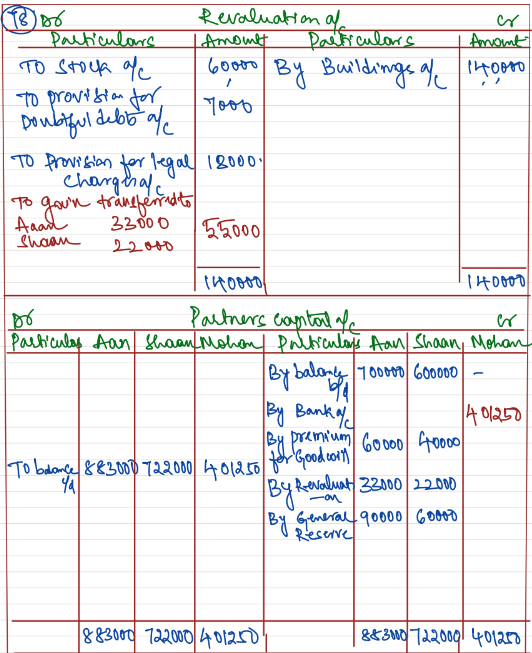 18 Dr Revaluation a/c Cr
Particulars Amount Particulars Amount
To Stock a/c 60000 By Buildings a/c 140000
To provision for
Doubtful debts a/c 7000
To Provision for legal 18000
Charges a/c
To gain transferred to
Aaan 33000 55000
Shaan 22000
140000 140000
Dr Partners capital a/c Cr
Particulars Aan Shaan Mohan Particulars Aan Shaan Mohan
By balance b/d 700000 600000 -
By Bank a/c 401250
By premium 60000 40000
for Goodwill
To balance c/d 883000 722000 401250
By Revaluat 33000 22000
-on
By General 90000 60000
Reserve
883000 722000 401250 883000 722000 401250